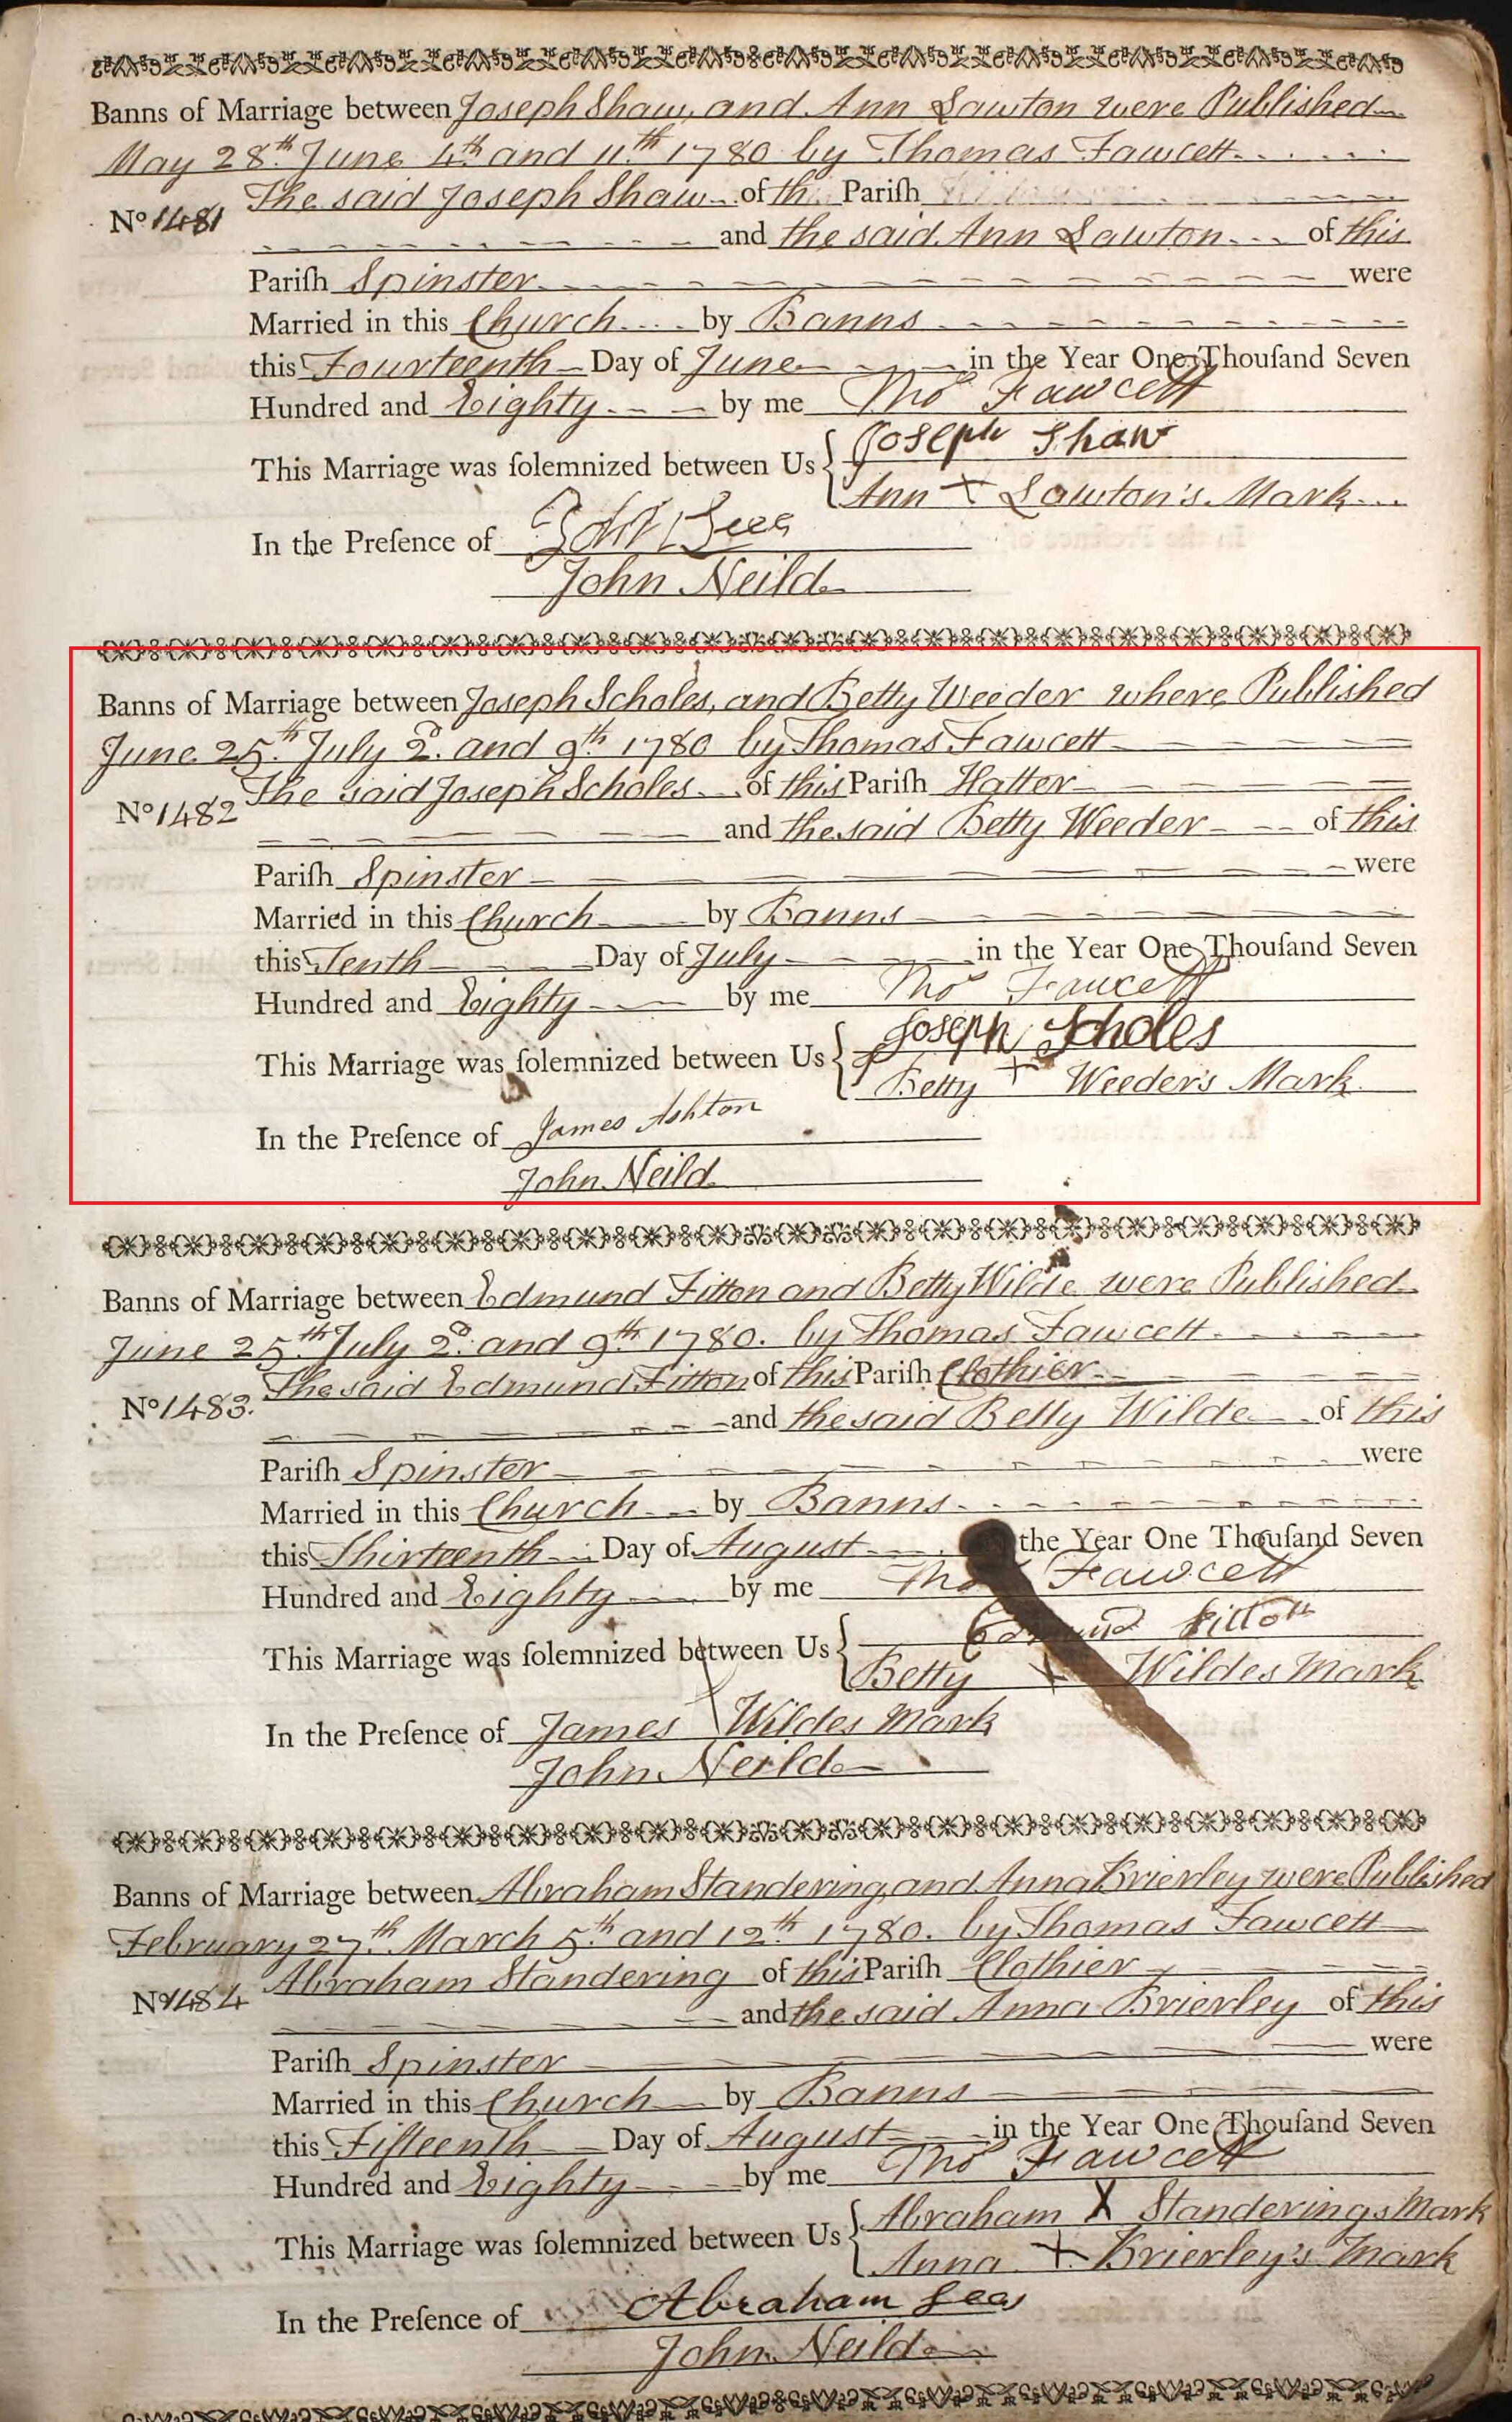 Banns of Marriage between Joseph Shaw, and Ann Lawton were Published
May 28th June 4th and 11th 1780 by Thomas Fawcett
The said Joseph Shaw of th Pariſh
No 1481
and the said Ann Lawton of this
Pariſh Spinster were
Married in this Church by Banns
this Fourteenth Day of June in the Year One Thouſand Seven
Hundred and Eighty by me Tho Fawcett
This Marriage was ſolemnized between Us Joseph Shaw
Ann + Lawton's Mark
In the Preſence of John Lees
John Neild
Banns of Marriage between Joseph Scholes, and Betty Weeder where Published
June 25th July 2d. and 9th 1780 by Thomas Fawcett
The said Joseph Scholes of this Pariſh Hatter
No 1482
and the said Betty Weeder of this
Pariſh Spinster were
Married in this Church by Banns
this Tenth Day of July in the Year One Thouſand Seven
Hundred and Eighty by me Tho Fawcett
This Marriage was ſolemnized between Us Joseph Scholes
Betty + Weeder's Mark
In the Preſence of James Ashton
John Neild
Banns of Marriage between Edmund Fitton and Betty Wilde were Published
June 25th July 2d. and 9th 1780. by Thomas Fawcett
The said Edmund Fitton of this Pariſh Clothier
No 1483.
and the said Betty Wilde of this
Pariſh Spinster were
Married in this Church by Banns
this Thirteenth Day of August the Year One Thouſand Seven
Hundred and Eighty by me Tho Fawcett
This Marriage was ſolemnized between Us Edmund Fitton
Betty X Wildes Mark
In the Preſence of James \ Wildes Mark
John Neild
Banns of Marriage between Abraham Standering, and Anna Brierley were Published
February 27th. March 5th and 12th 1780. by Thomas Fawcett
Abraham Standering of this Pariſh Clothier
No 1484
and the said Anna Brierley of this
Pariſh Spinster were
Married in this Church by Banns
this Fifteenth Day of August in the Year One Thouſand Seven
Hundred and Eighty by me Tho Fawcett
This Marriage was ſolemnized between Us Abraham X Standerings Mark
Anna + Brierley's Mark
In the Preſence of Abraham Lees
John Neild